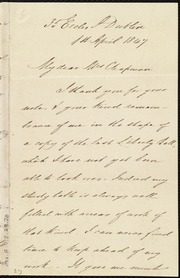 35 Eccles St Dublin
1st April 1847
My dear Mrs Chapman
I thank you for your
note, & your kind remem-
brance of me in the shape of
a copy of the last Liberty Bell,
which I have not yet been
able to look over. Indeed my
study table is always well
filled with arrears of work of
that kind. I can never find
time to keep ahead of my
work. It gave me much